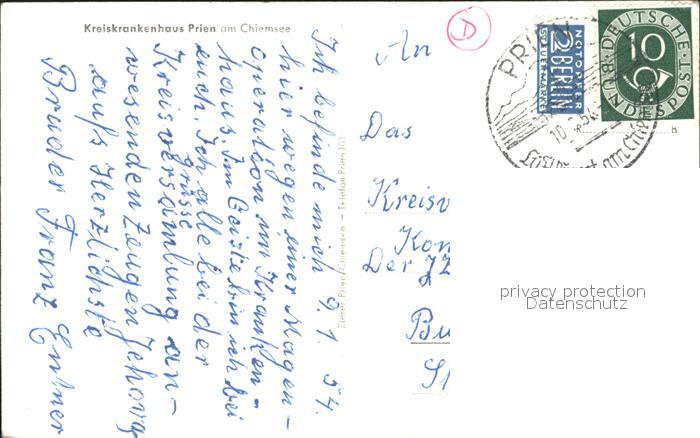 Kreiskrankenhaus Prien am Chiemsee
9. 1. 54.
Ich befinde mich
hier wegen einer Magen-
operation im Kranken-
haus. Im Geiste bin ich bei
euch. Ich alle bei der
grüsse
Kreisversamlung an-
wesenden Zeugen Jehovas
aufs Herzlichste
Bruder Franz Entner
Zierer Prien/Chiemsee – Telefon Prien
An
Das
Kreisv
Kon
Der JZ
Bu
St
D
NOTOPFER
2
BERLIN
STEUERMARKE
DEUTSCHE
BUNDESPOST
10
PRIEN
am Chiemsee
B
privacy protection
Datenschutz